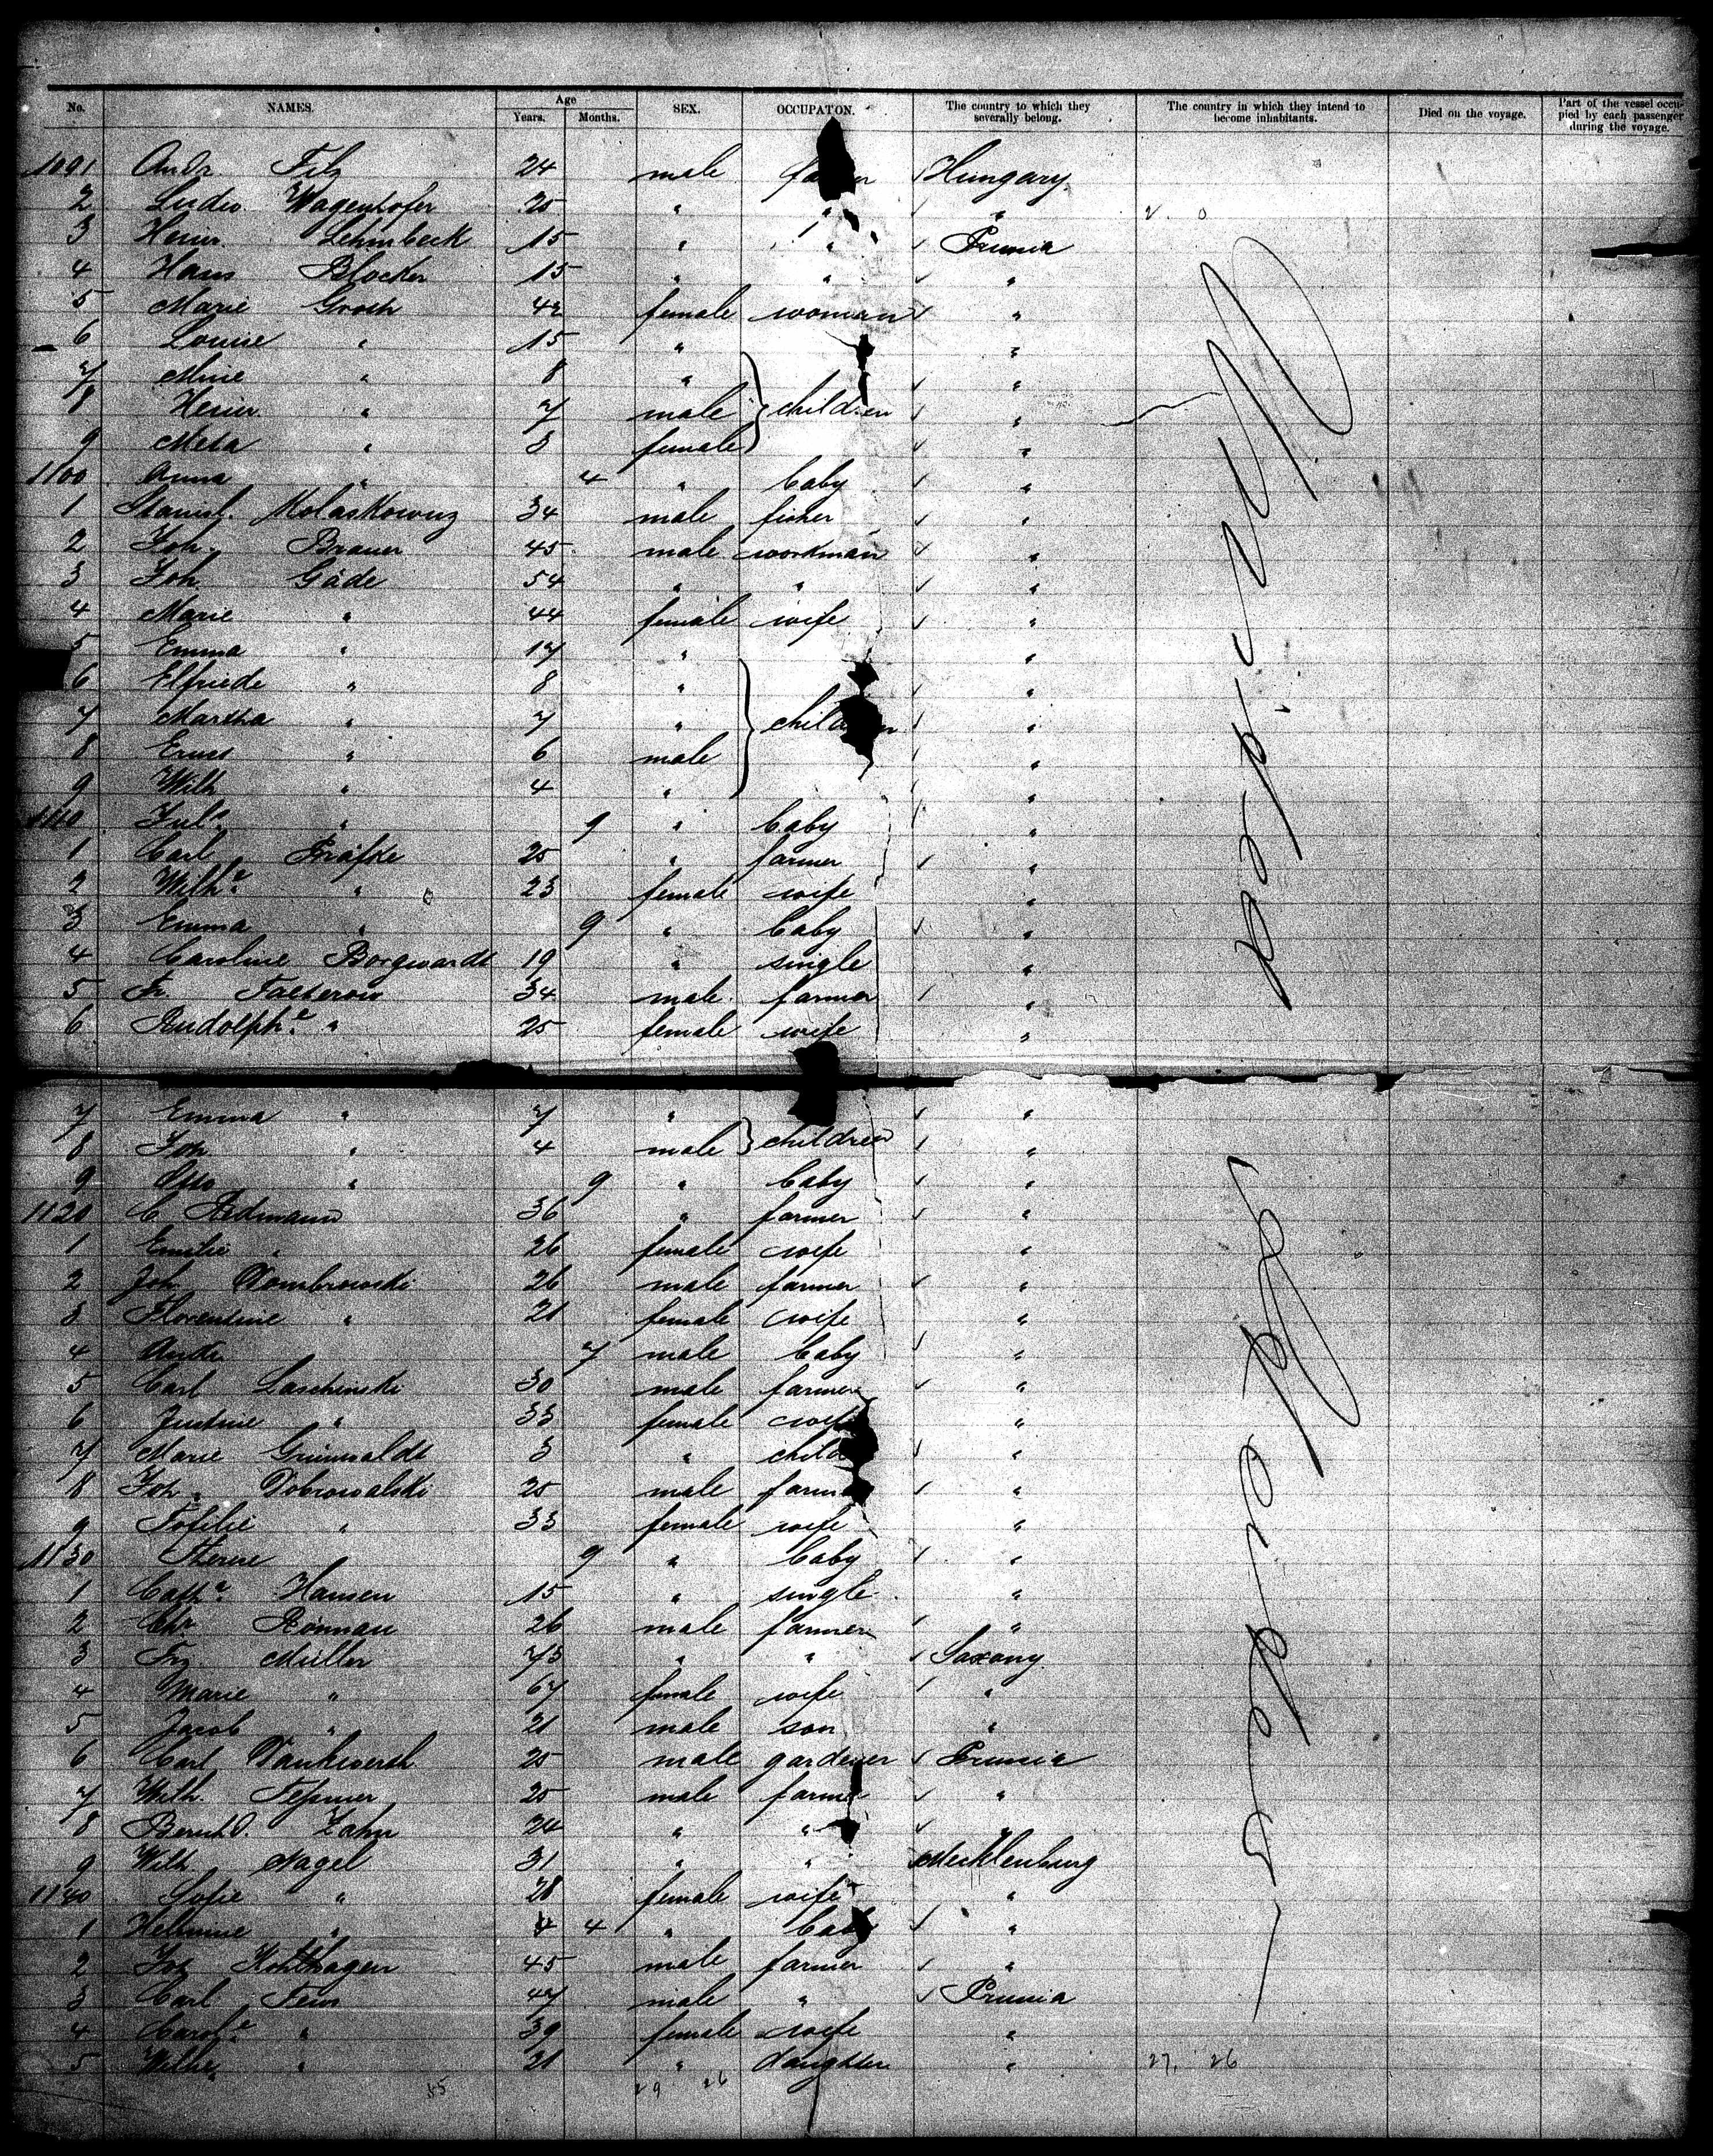 No. NAMES. Age Years. Months. SEX. OCCUPATON. The country to which they severally belong. The country in which they intend to become inhabitants. Died on the voyage. Part of the vessel occupied by each passenger during the voyage.
1091 Andr. Filz 24 male Hungary
2 Ludw. Wagenhofer 25 " " "
3 Heinr. Lehmbeck 15 " " Prussia
4 Hans Blocker 15 " " "
5 Marie Groth 42 female woman "
6 Louise " 15 " "
7 Mine " 8 " "
8 Heinr. " 7 male children "
9 Meta " 3 female "
1100 Anna " 4 " baby "
1 Stanisl. 34 male fisher "
2 Joh. Brauer 45 male workman "
3 Joh Gäde 54 " " "
4 Marie " 44 female wife "
5 Emma " 17 " "
6 Elfriede " 8 " "
7 Martha " 7 " children "
8 Ernst " 6 male "
9 Wilh " 4 " "
1110 Jul. " 9 " baby "
1 Carl 25 " farmer "
2 Wilh.e " 23 female wife "
3 Emma " 9 " baby "
4 Caroline Borgwardt 19 " single "
5 Fr. 34 male farmer "
6 Rudolph.e " 25 female wife "
7 Emma " 7 " "
8 Joh " 4 male children "
9 Otto " 9 " baby "
1120 C. Redmann 36 " farmer "
1 Emilie " 26 female wife "
2 Joh Dombrowski 26 male farmer "
3 Florentine " 21 female wife "
4 " 7 male baby "
5 Carl Laschinski 30 male farmer "
6 Justine " 33 female wife "
7 Marie Grünwaldt 3 " child "
8 Joh. Dobrowalski 25 male farmer "
9 Tofilie " 33 female wife "
1130 Therese " 9 " baby "
1 Cath.e Hansen 15 " single "
2 Chr Rönnau 26 male farmer "
3 Frz. Müller 73 " " Saxony
4 Marie " 67 female wife "
5 Jacob " 21 male son "
6 Carl Dankwerth 25 male gardener Prussia
7 Wilh. Tessmer 25 male farmer "
8 Bernhd. Zahn 24 " " "
9 Wilh Nagel 31 " " Mecklenburg
1140 Sofie " 28 female wife "
1 Helmine " 4 " baby "
2 Joh Kohlhagen 45 male farmer "
3 Carl 47 male " Prussia
4 Carol.e " 39 female wife "
5 Wilh.e " 21 " daughter " 27. 26
55 29 26